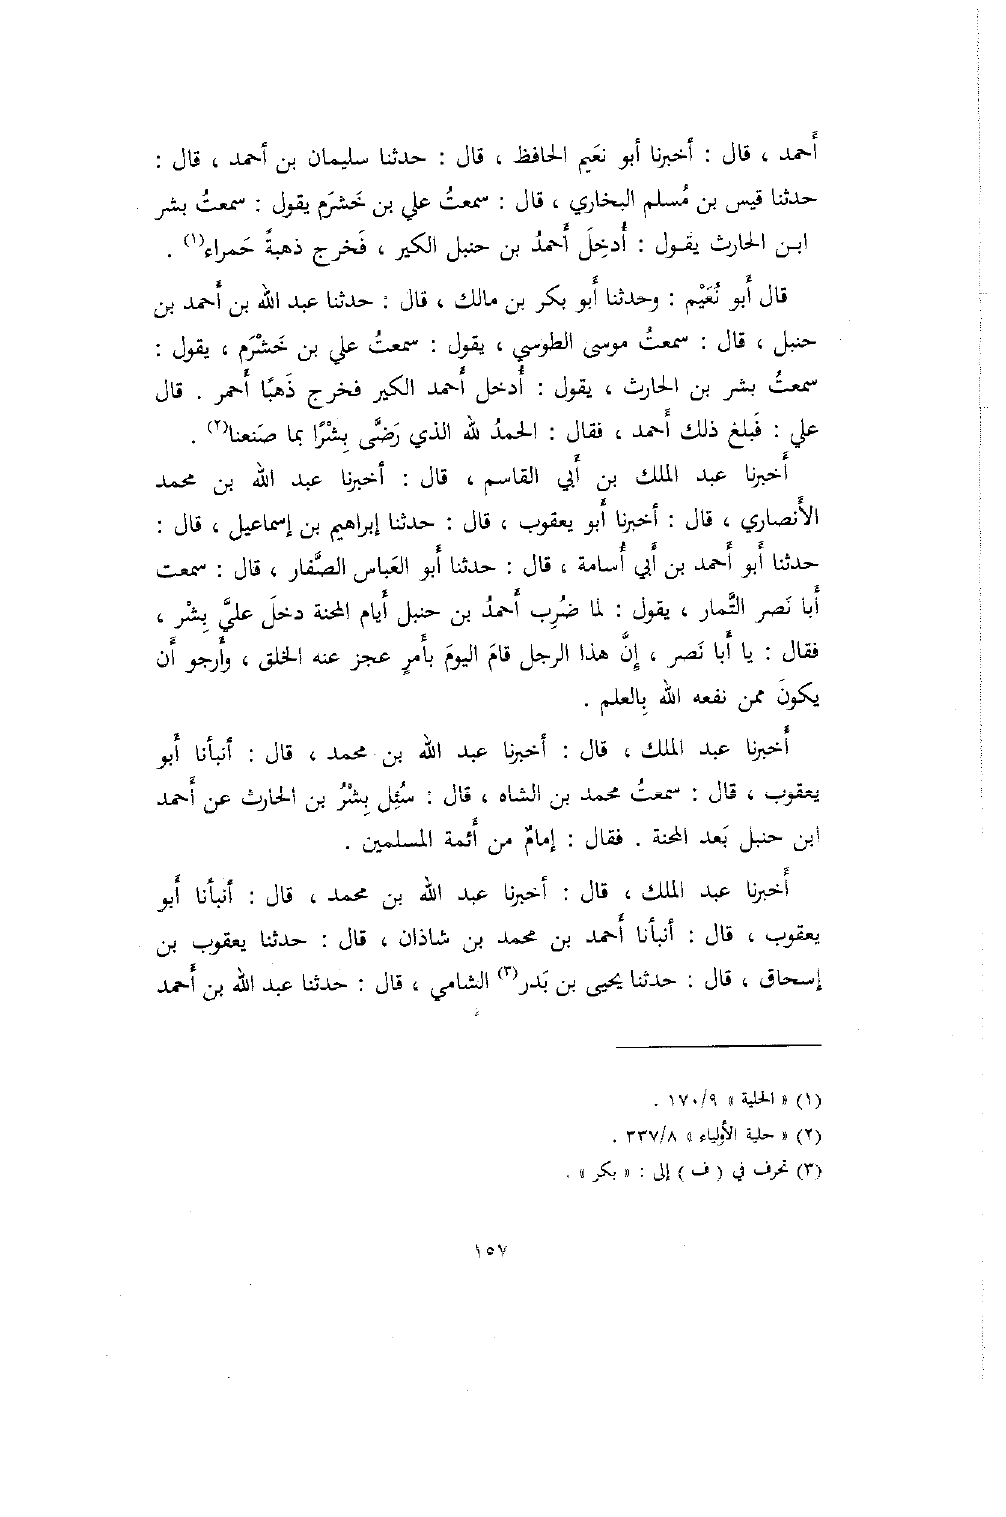 أَحمد ، قال : أخبرنا أبو نعَيم الحافظ ، قال : حدثنا سليمان بن أحمد ، قال :
حدثنا قيس بن مُسلم البخاري ، قال : سمعتُ علي بن خَشرَم يقول : سمعتُ بشر
ابن الحارث يقول : أُدخِلَ أَحمدُ بن حنبل الكير ، فَخرج ذهبةً حَمراء(١) .
قال أَبو نُعَيْم : وحدثنا أَبو بكر بن مالك ، قال : حدثنا عبد الله بن أَحمد بن
حنبل ، قال : سمعتُ موسى الطوسي ، يقول : سمعتُ علي بن خَشْرَم ، يقول :
سمعتُ بشر بن الحارث ، يقول : أُدخل أَحمد الكير فخرج ذَهبًا أَحمر . قال
علي : فَبلغ ذلك أَحمد ، فقال : الحمدُ لله الذي رَضَّى بِشْرًا بما صَنعنا(٢) .
أَخبرنا عبد الملك بن أَبي القاسم ، قال : أخبرنا عبد الله بن محمد
الأَنصاري ، قال : أخبرنا أَبو يعقوب ، قال : حدثنا إبراهيم بن إسماعيل ، قال :
حدثنا أَبو أَحمد بن أَبي أُسامة ، قال : حدثنا أَبو العَباس الصَّفار ، قال : سمعت
أَبا نَصر التَّمار ، يقول : لما ضُرِب أَحمدُ بن حنبل أَيام المحنة دخلَ عليَّ بِشْر ،
فقال : يا أَبا نَصر ، إِنَّ هذا الرجل قامَ اليومَ بأَمرٍ عجز عنه الخلق ، وأَرجو أَن
يكونَ ممن نفعه الله بِالعلم .
أَخبرنا عبد الملك ، قال : أخبرنا عبد الله بن محمد ، قال : أنبأنا أَبو
يعقوب ، قال : سمعتُ محمد بن الشاه ، قال : سُئِل بِشْرُ بن الحارث عن أَحمد
ابن حنبل بَعد المحنة . فقال : إمامٌ من أَئمة المسلمين .
أَخبرنا عبد الملك ، قال : أخبرنا عبد الله بن محمد ، قال : أنبأنا أَبو
يعقوب ، قال : أنبأنا أَحمد بن محمد بن شاذان ، قال : حدثنا يعقوب بن
إسحاق ، قال : حدثنا يحيى بن بَدر(٣) الشامي ، قال : حدثنا عبد الله بن أَحمد
(١) « الحلية » ١٧٠/٩ .
(٢) « حلية الأولياء » ٣٣٧/٨ .
(٣) تحرف في ( ف ) إلى : « بكر » .
١٥٧